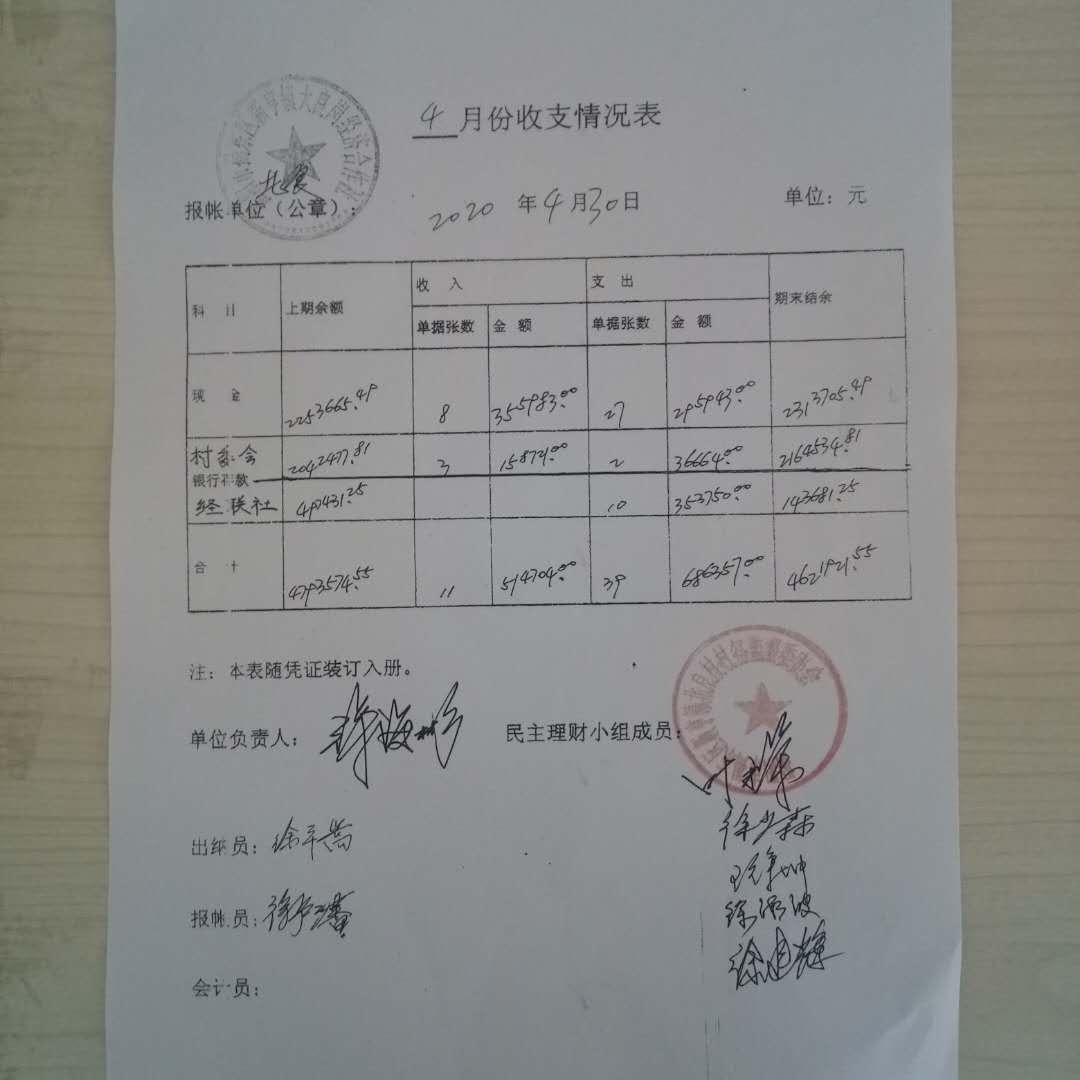 4月份收支情况表
北良
报帐单位（公章）：
2020 年 4 月 30 日
单位：元
科 目 上期余额 收 入 支 出 期末结余
单据张数 金 额 单据张数 金 额
现 金 2253665.49 8 355983.00 27 295943.00 2313705.49
村委会 2042477.81 3 158721.00 2 36664.00 2164534.81
银行存款
经联社 497431.25 10 353750.00 143681.25
合 计 4793574.55 11 514704.00 39 686357.00 4621921.55
注：本表随凭证装订入册。
单位负责人：
民主理财小组成员：
徐少森
出纳员：
报帐员：
会计员：